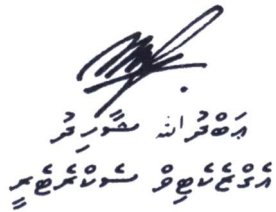 ޢަބްދުﷲ ޝާހިދު
އެގްޒެކެޓިވް ސެކްރެޓެރީ